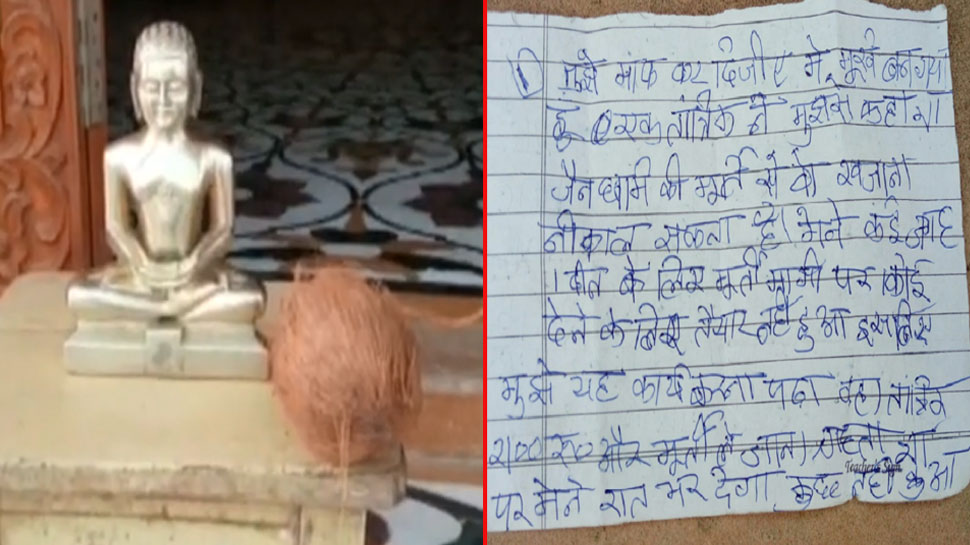 ① मुझे माफ कर दिजीए मे मूर्ख बन गया
हु एक तांत्रिक ने मुझसे कहा था
जैन धामि की मूर्ति से वो खजाना
नीकाल सकता है। मेने कई जगह
1 दिन के लिए मूर्ती मांगी पर कोई
देने के लिए तैयार नही हुआ इसलिए
मुझे यह कार्य करना पडा वह तांत्रिक
रू और मूर्ती ले जाना चाहता था
Teacher's Sign
पर मेने रात भर देगा कुछ नही हुआ